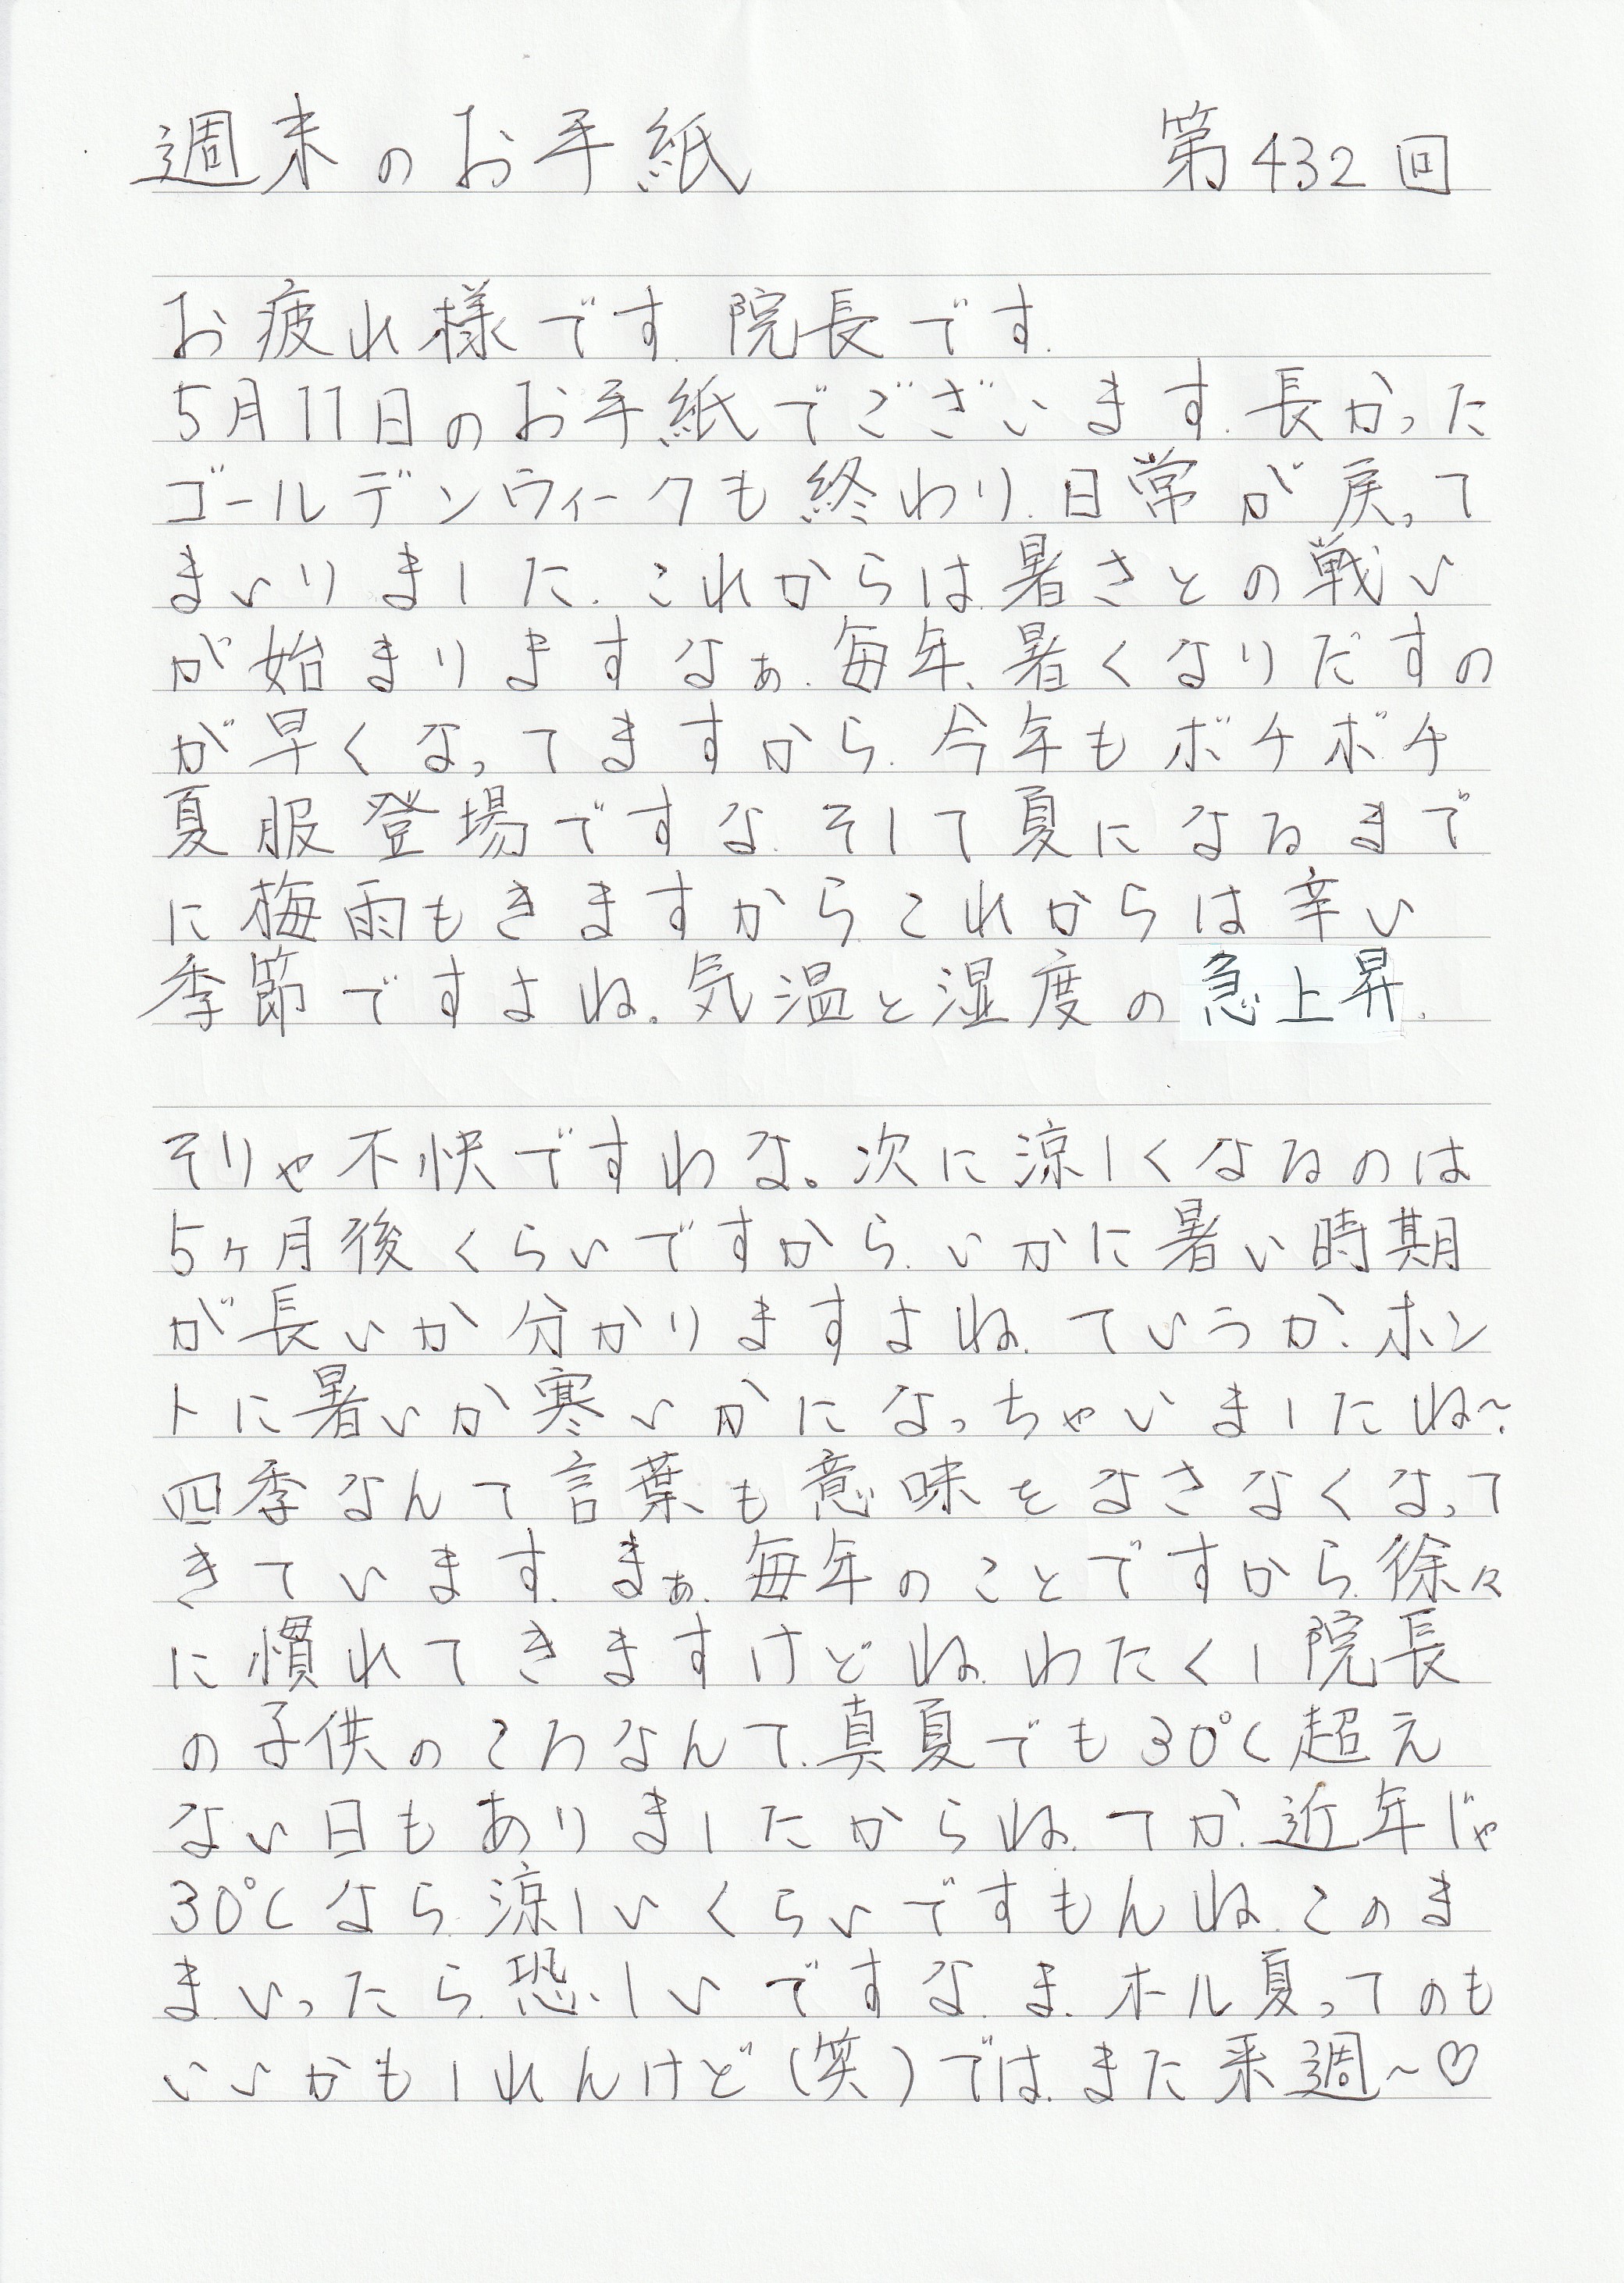 週末のお手紙 第432回
お疲れ様です.院長です.
5月11日のお手紙でございます.長かった
ゴールデンウィークも終わり.日常が戻って
まいりました.これからは.暑さとの戦い
が始まりますなぁ.毎年、暑くなりだすの
が早くなってますから.今年もボチボチ
夏服登場ですな.そして夏になるまで
に梅雨もきますからこれからは辛い
季節ですよね。気温と湿度の急上昇.
そりゃ不快ですわな。次に涼しくなるのは
5ヶ月後くらいですから.いかに暑い時期
が長いか分かりますよね.ていうか、ホン
トに暑いか寒いかになっちゃいましたね〜.
四季なんて言葉も意味をなさなくなって
きています.まぁ.毎年のことですから.徐々
に慣れてきますけどね.わたくし院長
の子供のころなんて.真夏でも30℃超え
ない日もありましたからね.てか.近年じゃ
30℃なら.涼しいくらいですもんね.このま
まいったら.恐しいですな.ま.ホール夏ってのも
いいかもしれんけど(笑)では.また来週〜♡